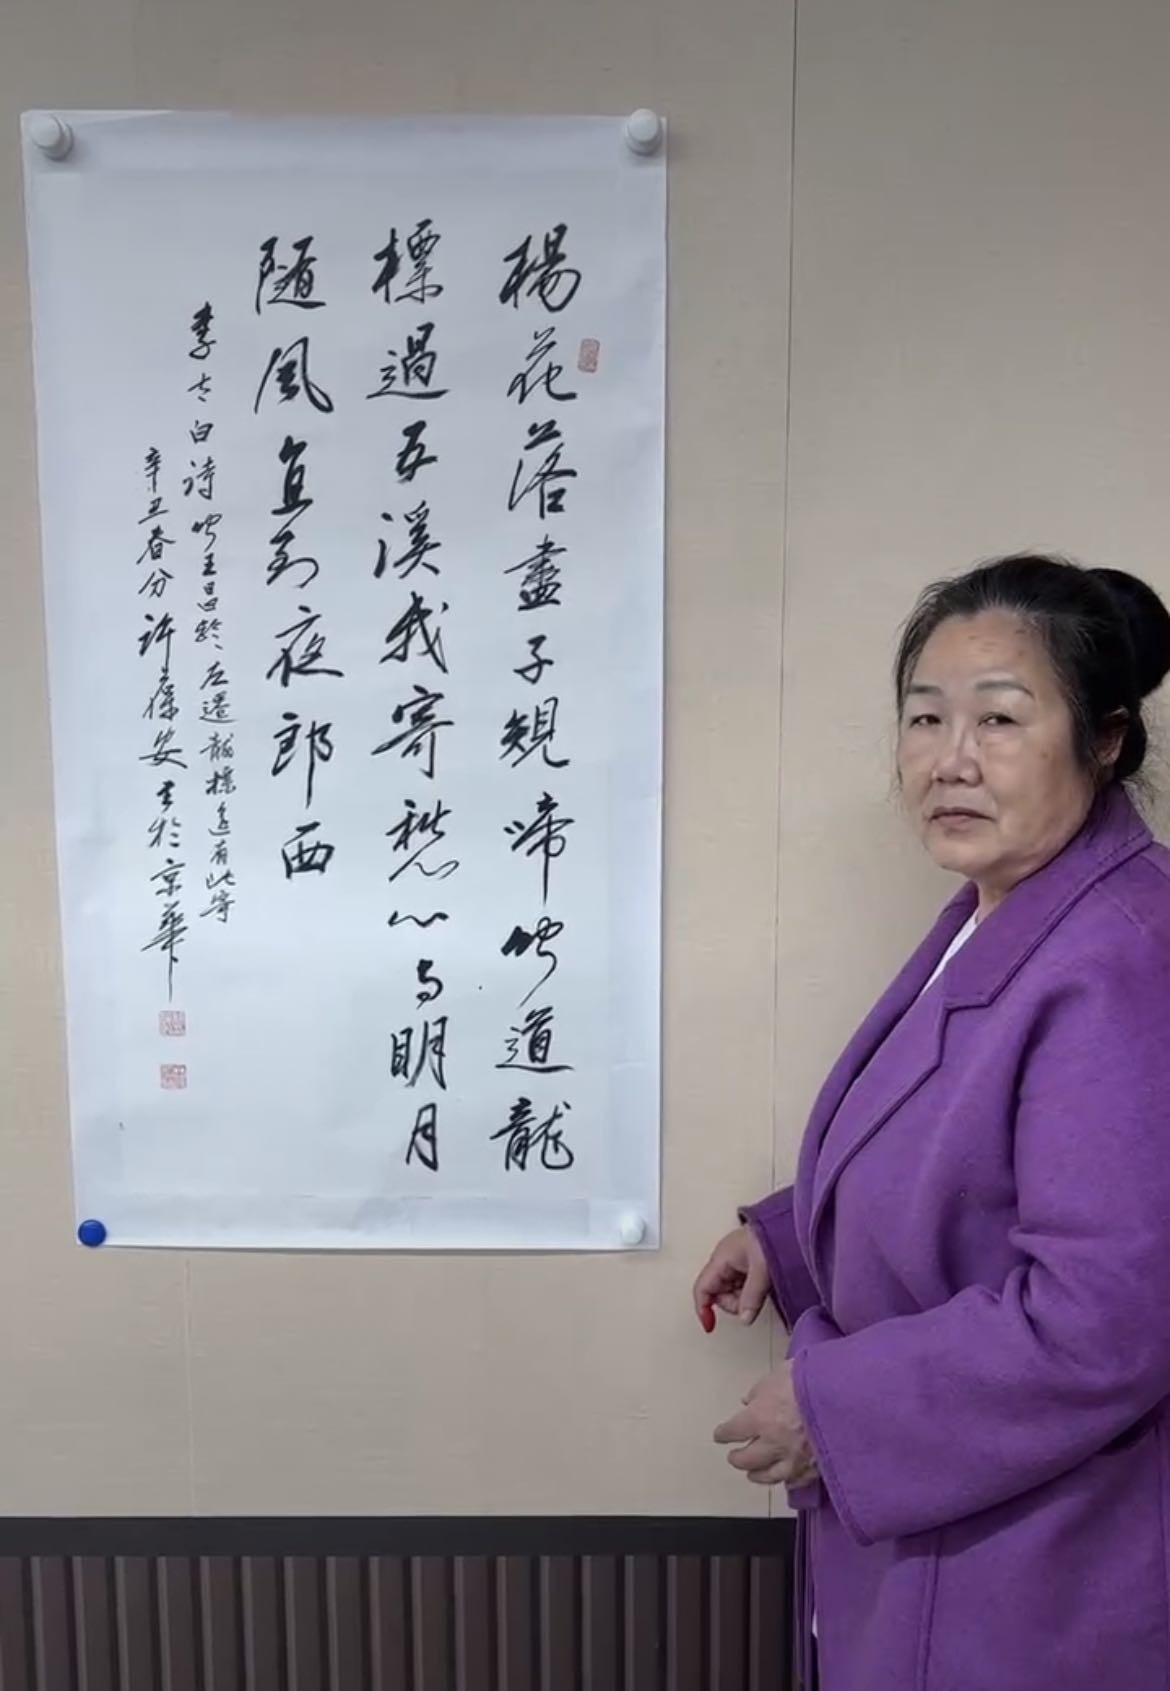 楊花落盡子規啼聞道龍
標過五溪我寄愁心與明月
隨風直到夜郎西
李太白詩聞王昌齡左遷龍標遙有此寄
辛丑春分許葆安書於京華